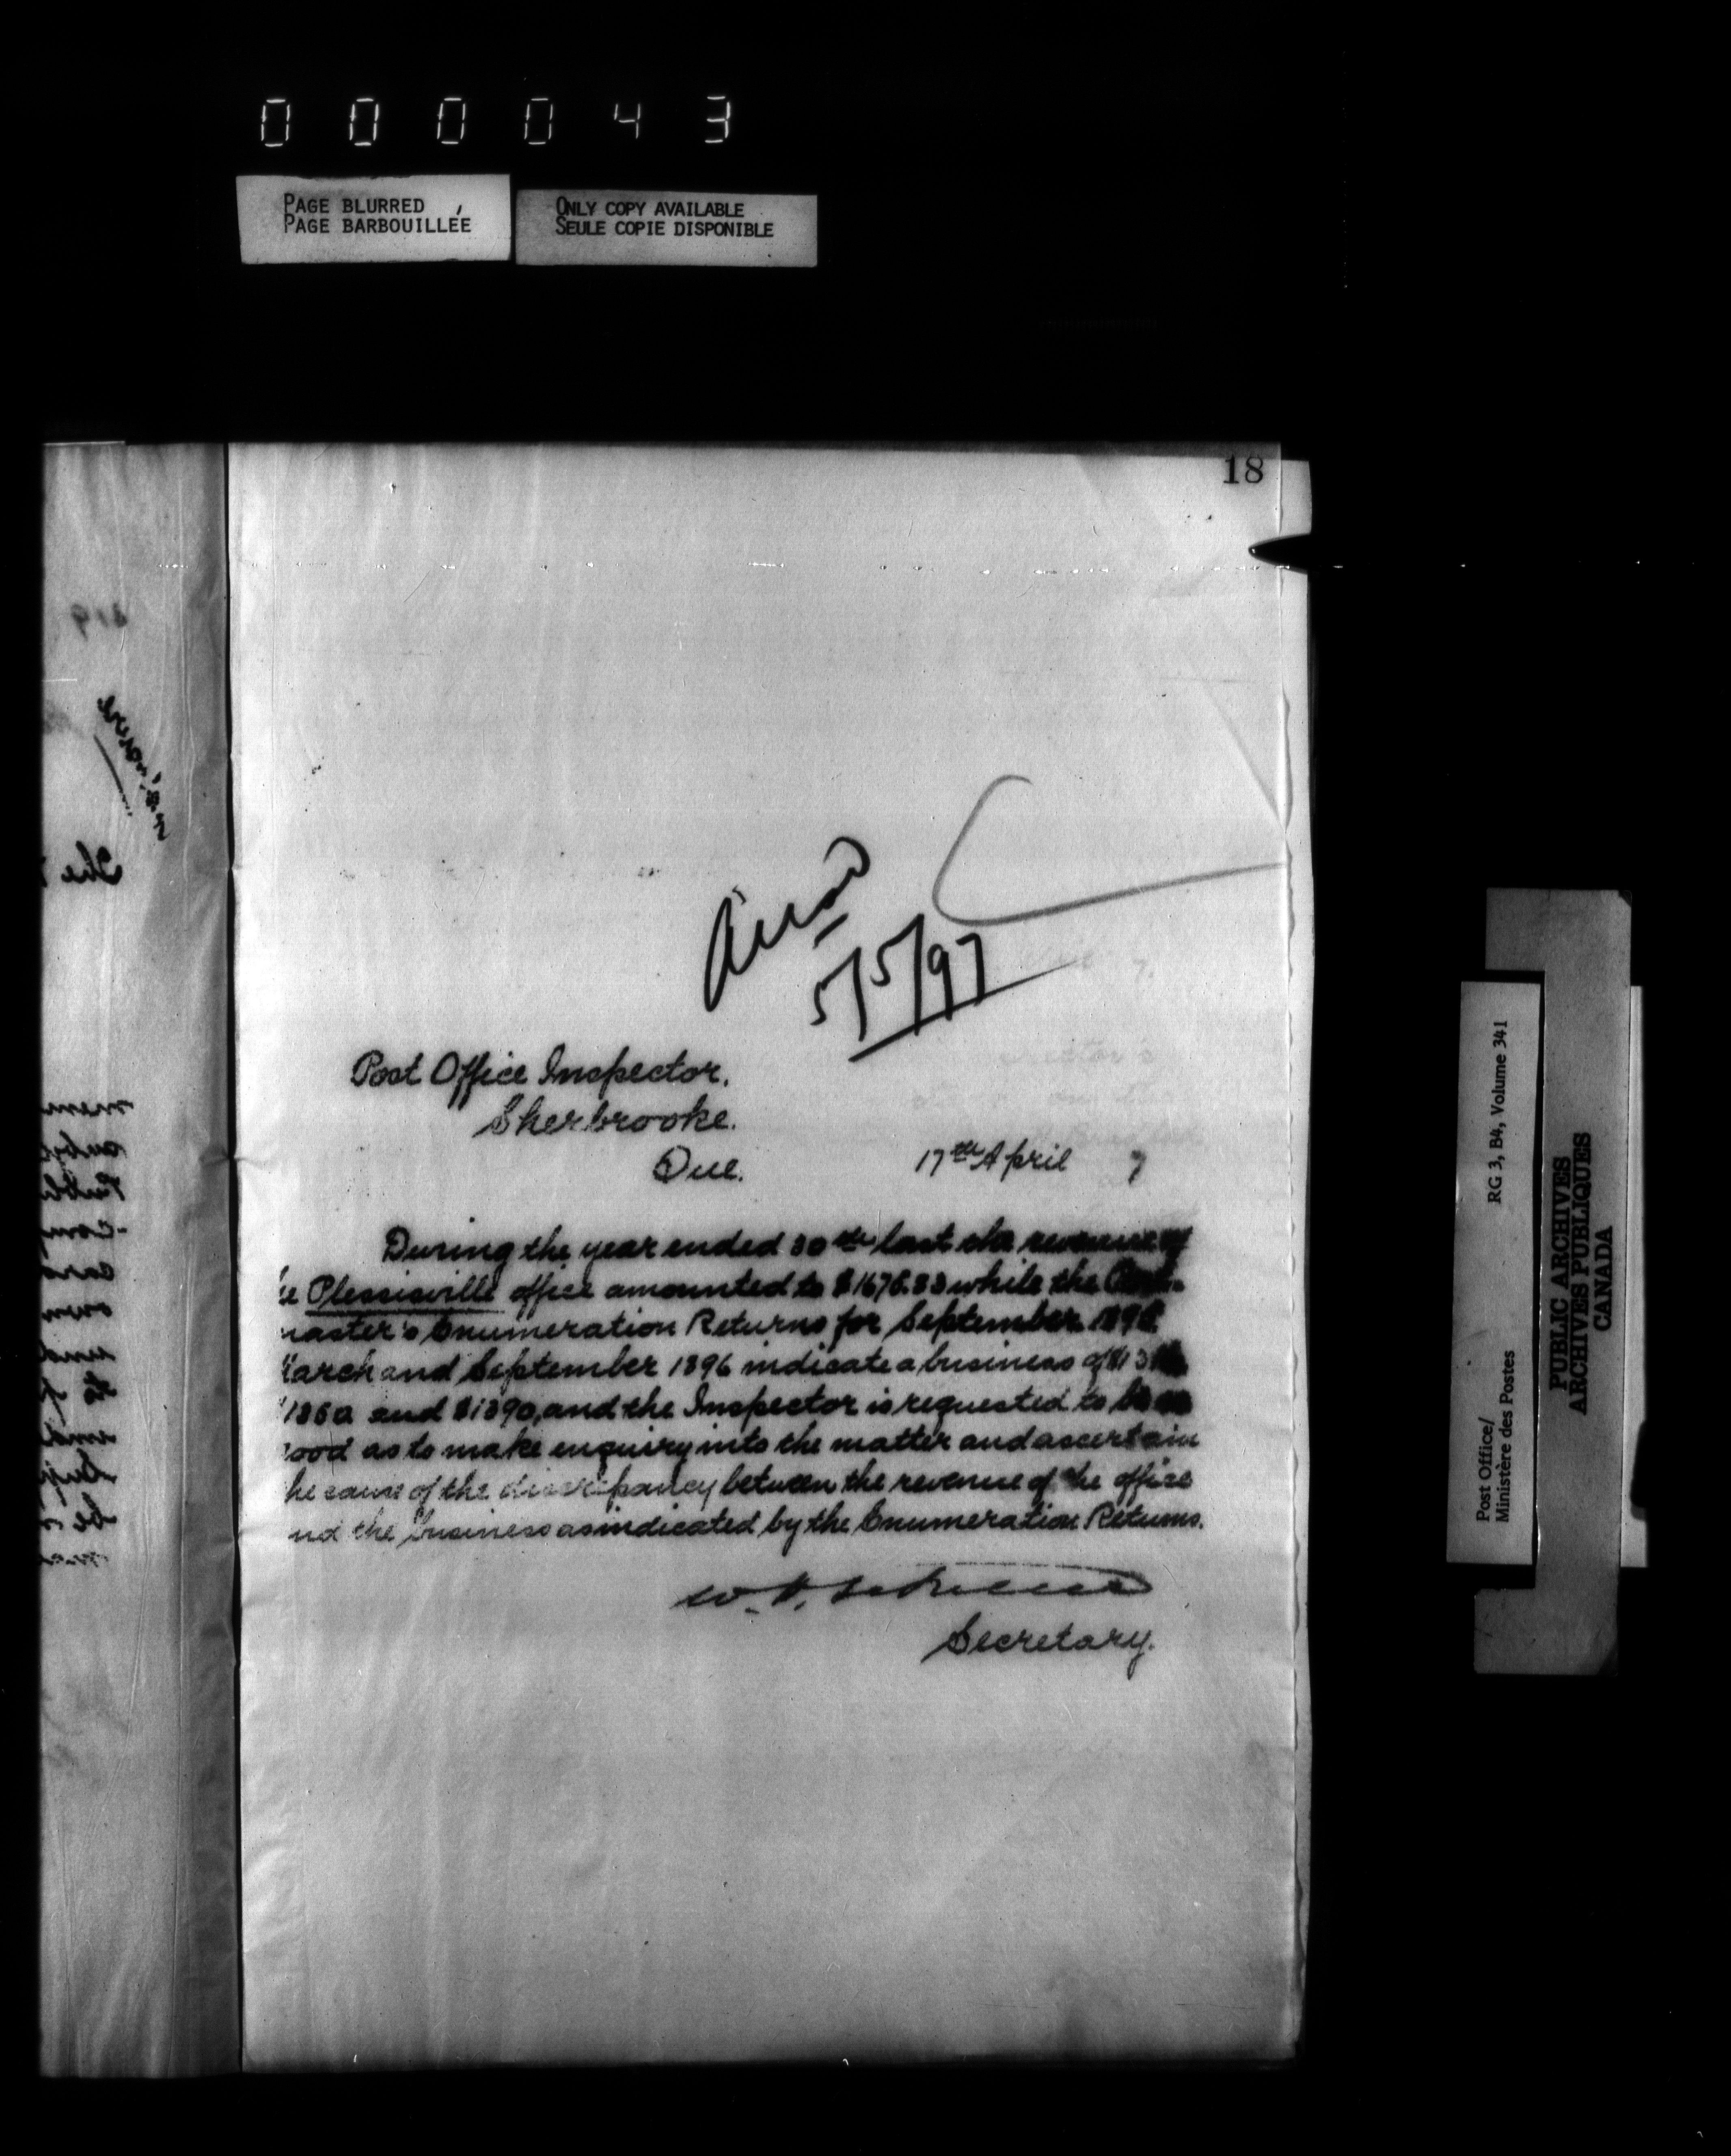 000043
PAGE BLURRED
PAGE BARBOUILLÉE
ONLY COPY AVAILABLE
SEULE COPIE DISPONIBLE
18
5/5/97
Post Office Inspector,
Sherbrooke.
Que.
17th April 7
During the year ended 30th last the revenue of
he Plessisville office amounted to $1678.83 while the
master's Enumeration Returns for September 189
March and September 1896 indicate a business of
$1360 and $1390, and the Inspector is requested to be so
ood as to make enquiry into the matter and ascertain
he cause of the discrepancy between the revenue of the office
nd the business as indicated by the Enumeration Returns.
Secretary.
The
Post Office/
Ministère des Postes
RG 3, B4, Volume 341
PUBLIC ARCHIVES
ARCHIVES PUBLIQUES
CANADA